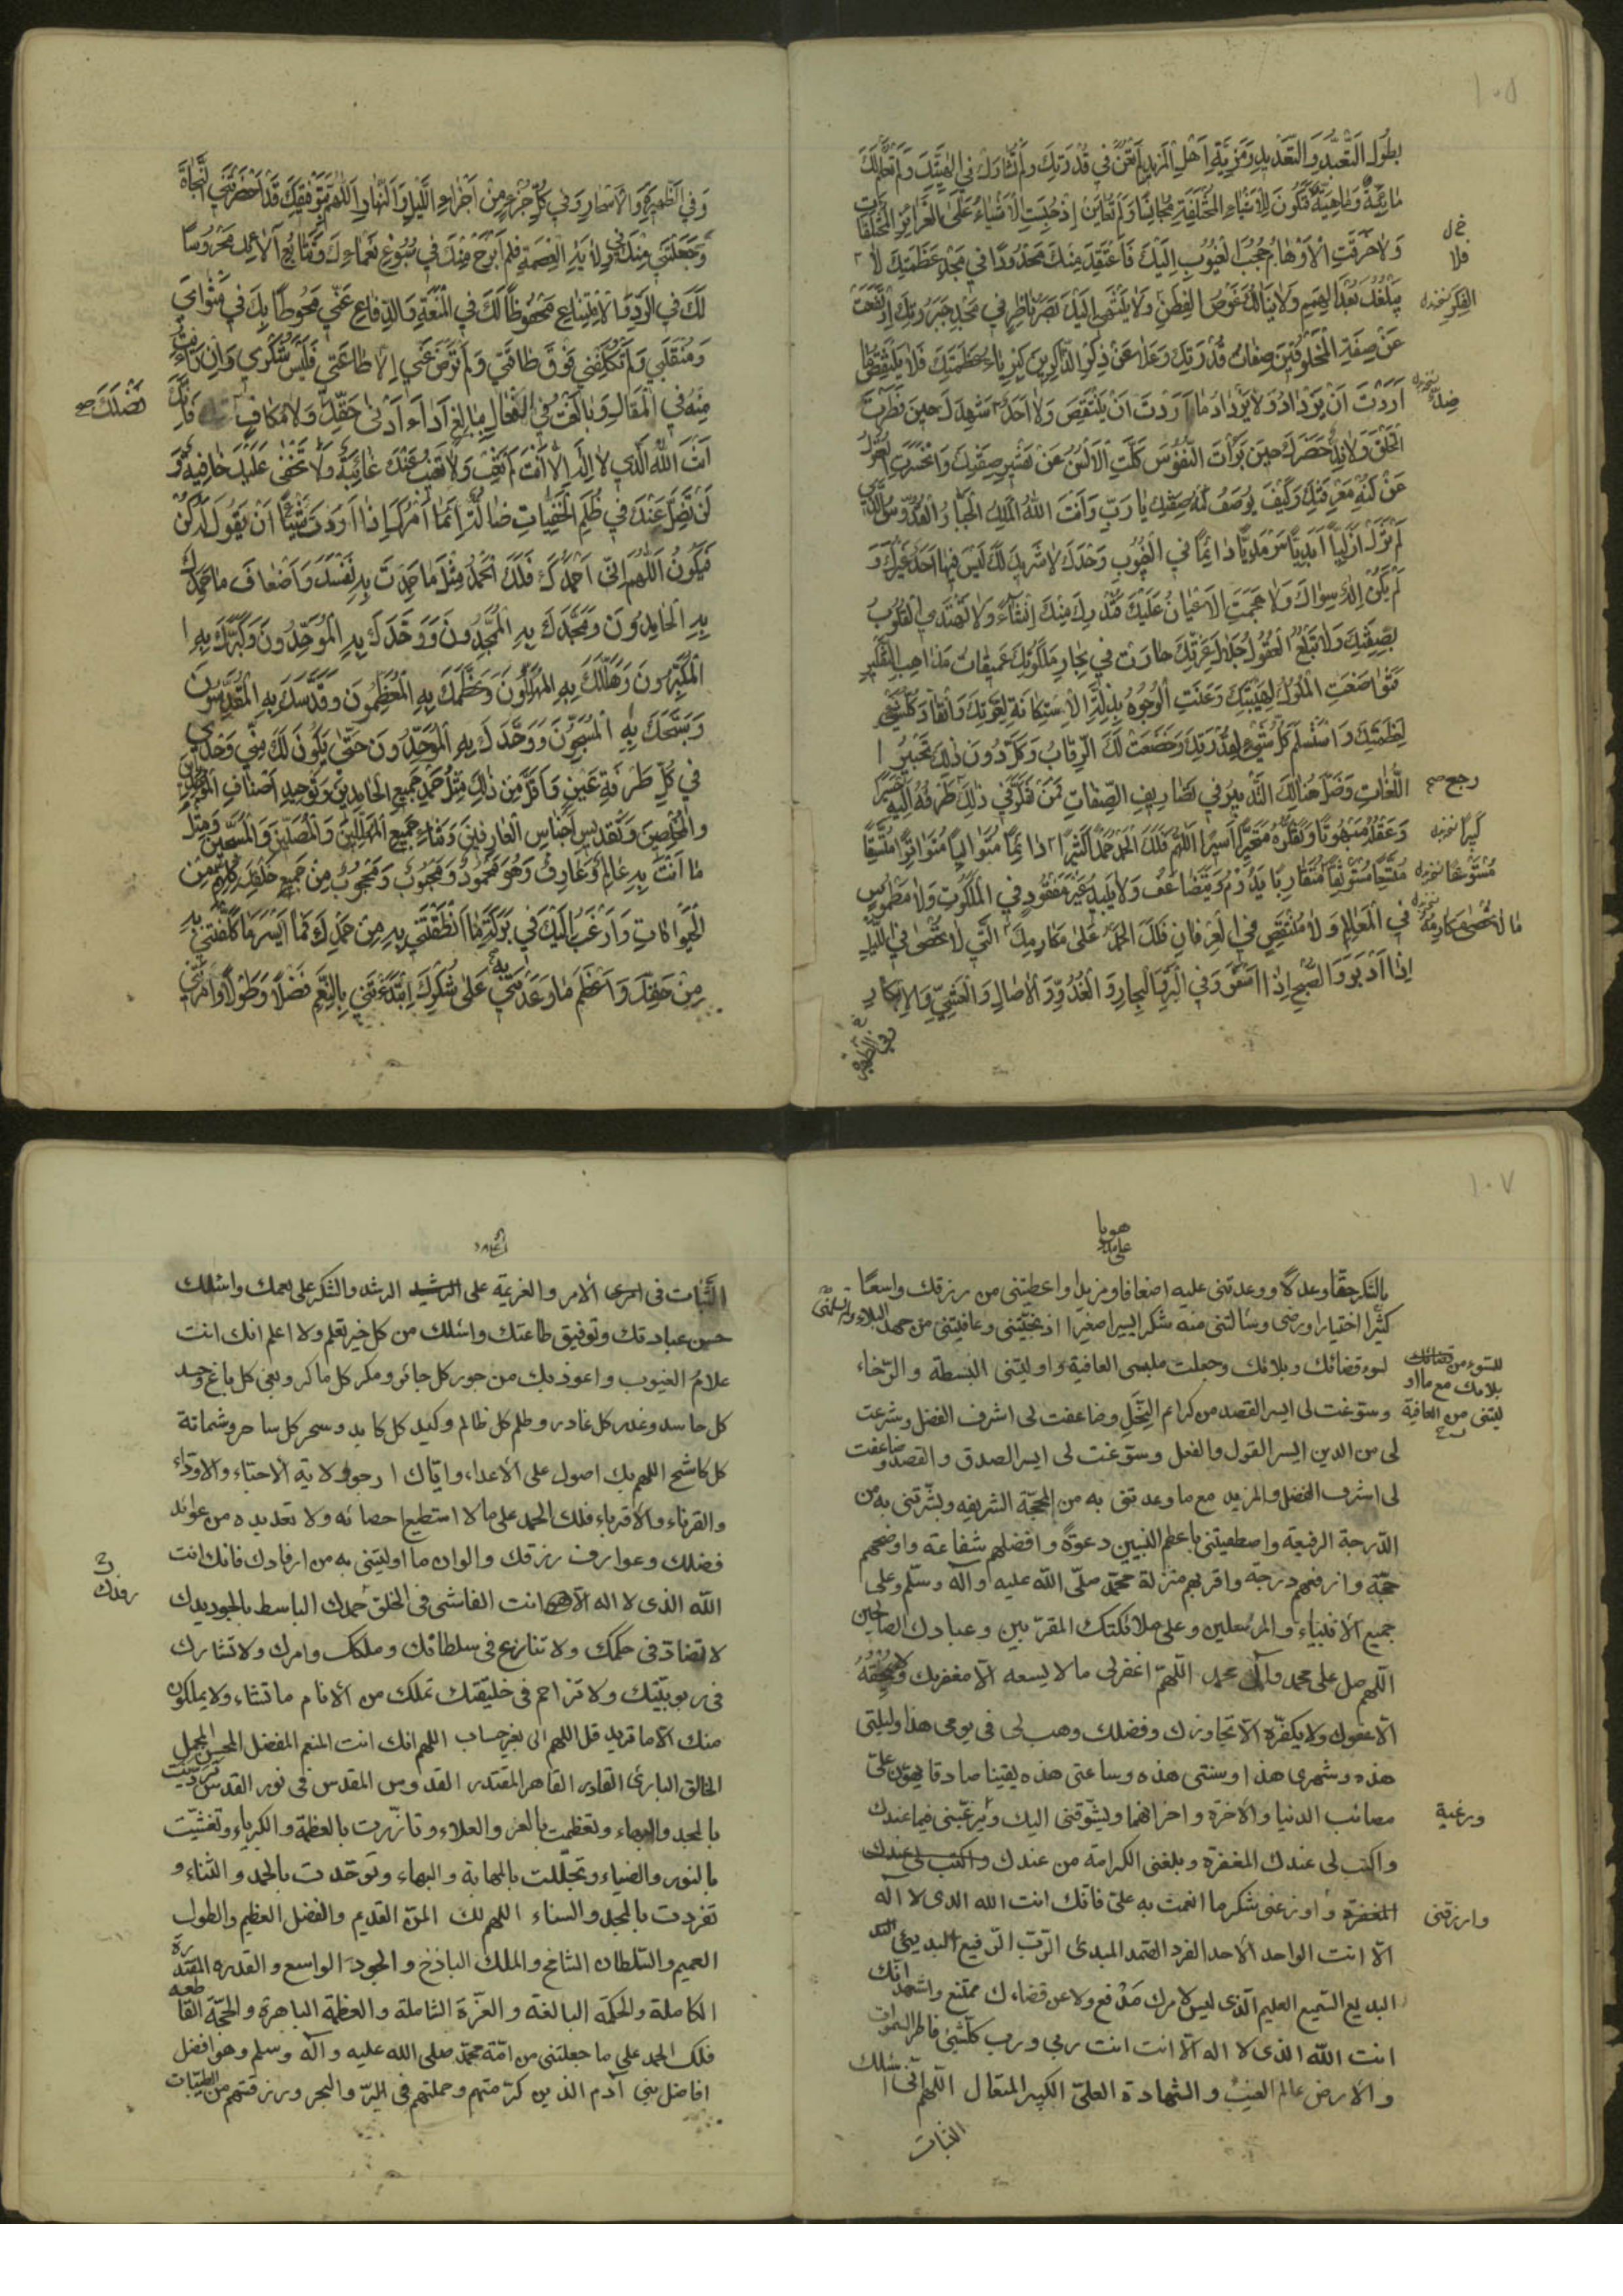 ١٠٥
بطُولِ التَّعَبُّدِ وَالتَّعْدِيدِ وَمَزِيَّةِ اَهْلِ الْمَزِيدِ لَمْ تُعَنْ فِي قُدْرَتِكَ وَلَمْ تُشَارَكْ فِي اِلٰهِيَّتِكَ وَلَمْ تُعْلَمْ لَكَ
مَائِيَّةٌ وَمَاهِيَّةٌ فَتَكُونَ لِلْاَشْيَاءِ الْمُخْتَلِفَةِ مُجَانِسًا وَلَمْ تُعَايَنْ اِذْ حُبِسَتِ الْاَشْيَاءُ عَلَى الْغَرَائِزِ الْمُخْتَلِفَاتِ
وَلَا خَرَقَتِ الْاَوْهَامُ حُجُبَ الْغُيُوبِ اِلَيْكَ فَاَعْتَقِدَ مِنْكَ مَحْدُودًا فِي مَجْدِ عَظَمَتِكَ لَا
يَبْلُغُكَ بُعْدُ الْهِمَمِ وَلَا يَنَالُكَ غَوْصُ الْفِطَنِ وَلَا يَنْتَهِي اِلَيْكَ بَصَرُ نَاظِرٍ فِي مَجْدِ جَبَرُوتِكَ اِرْتَفَعَتْ
عَنْ صِفَةِ الْمَخْلُوقِينَ صِفَاتُ قُدْرَتِكَ وَعَلَا عَنْ ذِكْرِ الذَّاكِرِينَ كِبْرِيَاءُ عَظَمَتِكَ فَلَا يَنْتَقِصُ مَا
اَرَدْتَ اَنْ يَزْدَادَ وَلَا يَزْدَادُ مَا اَرَدْتَ اَنْ يَنْتَقِصَ وَلَا اَحَدٌ شَهِدَكَ حِينَ فَطَرْتَ
الْخَلْقَ وَلَا نِدٌّ حَضَرَكَ حِينَ بَرَأْتَ النُّفُوسَ كَلَّتِ الْاَلْسُنُ عَنْ تَفْسِيرِ صِفَتِكَ وَانْحَسَرَتِ الْعُقُولُ
عَنْ كُنْهِ مَعْرِفَتِكَ وَكَيْفَ يُوصَفُ كُنْهُ صِفَتِكَ يَا رَبِّ وَاَنْتَ اللهُ الْمَلِكُ الْجَبَّارُ الْقُدُّوسُ الَّذِي
لَمْ تَزَلْ اَزَلِيًّا اَبَدِيًّا سَرْمَدِيًّا دَائِمًا فِي الْغُيُوبِ وَحْدَكَ لَا شَرِيكَ لَكَ لَيْسَ فِيهَا اَحَدٌ غَيْرُكَ وَ
لَمْ يَكُنْ اِلٰهٌ سِوَاكَ وَلَا هَجَمَتِ الْاَعْيَانُ عَلَيْكَ فَتُدْرِكَ مِنْكَ اِنْشَاءً وَلَا تَهْتَدِي الْقُلُوبُ
لِصِفَتِكَ وَلَا تَبْلُغُ الْعُقُولُ جَلَالَ عِزَّتِكَ حَارَتْ فِي بِحَارِ مَلَكُوتِكَ عَمِيقَاتُ مَذَاهِبِ التَّفْكِيرِ
فَتَوَاضَعَتِ الْمُلُوكُ لِهَيْبَتِكَ وَعَنَتِ الْوُجُوهُ بِذِلَّةِ الْاِسْتِكَانَةِ لِعِزَّتِكَ وَانْقَادَ كُلُّ شَيْءٍ
لِعَظَمَتِكَ وَاسْتَسْلَمَ كُلُّ شَيْءٍ لِقُدْرَتِكَ وَخَضَعَتْ لَكَ الرِّقَابُ وَكَلَّ دُونَ ذٰلِكَ تَحْبِيرُ
اللُّغَاتِ وَضَلَّ هُنَالِكَ التَّدْبِيرُ فِي تَصَارِيفِ الصِّفَاتِ فَمَنْ تَفَكَّرَ فِي ذٰلِكَ طَرْفُهُ اِلَيْهِ حَسِيرًا
وَعَقْلُهُ مَبْهُوتًا وَتَفَكُّرُهُ مُتَحَيِّرًا اَسِيرًا اَللّٰهُمَّ فَلَكَ الْحَمْدُ حَمْدًا كَثِيرًا دَائِمًا مُتَوَالِيًا مُتَوَاتِرًا مُتَّسِقًا
مُتَّسِعًا مُسْتَوْثِقًا مُتَقَارِبًا يَدُومُ وَيَتَضَاعَفُ وَلَا يَبِيدُ غَيْرَ مَفْقُودٍ فِي الْمَلَكُوتِ وَلَا مَطْمُوسٍ
فِي الْمَعَالِمِ وَلَا مُنْتَقَصٍ فِي الْعِرْفَانِ فَلَكَ الْحَمْدُ عَلَى مَكَارِمِكَ الَّتِي لَا تُحْصَى فِي اللَّيْلِ
اِذَا اَدْبَرَ وَالصُّبْحِ اِذَا اَسْفَرَ وَفِي الْبَرِّ وَالْبِحَارِ وَالْغُدُوِّ وَالْاٰصَالِ وَالْعَشِيِّ وَالْاِبْكَارِ
فلا
الفكر نسخه
ضدّ نسخه
رجع صح
كبيرا نسخه
مستوسقا نسخه
ما لا تحصى مكارمه نسخه
وفي الظهيرة
وَفِي الظَّهِيرَةِ وَالْاَسْحَارِ وَفِي كُلِّ جُزْءٍ مِنْ اَجْزَاءِ اللَّيْلِ وَالنَّهَارِ اَللّٰهُمَّ بِتَوْفِيقِكَ قَدْ اَحْضَرْتَنِي النَّجَاةَ
وَجَعَلْتَنِي مِنْكَ فِي وِلَايَةِ الْعِصْمَةِ فَلَمْ اَبْرَحْ مِنْكَ فِي سُبُوغِ نَعْمَائِكَ وَتَتَابُعِ اٰلَائِكَ مَحْرُوسًا
لَكَ فِي الرَّدِّ وَالْاِمْتِنَاعِ مَحْفُوظًا لَكَ فِي الْمَنَعَةِ وَالدِّفَاعِ عَنِّي مَحُوطًا بِكَ فِي مَثْوَايَ
وَمُنْقَلَبِي وَلَمْ تُكَلِّفْنِي فَوْقَ طَاقَتِي وَلَمْ تَرْضَ عَنِّي اِلَّا طَاعَتِي فَلَيْسَ شُكْرِي وَاِنْ دَاَبْتُ
مِنْهُ فِي الْمَقَالِ وَبَالَغْتُ فِي الْفَعَالِ بِبَالِغِ اَدَاءِ اَدْنٰى حَقِّكَ وَلَا مُكَافٍ فَاِنَّكَ
فضلك صح
اَنْتَ اللهُ الَّذِي لَا اِلٰهَ اِلَّا اَنْتَ لَمْ تَغِبْ وَلَا تَغِيبُ عَنْكَ غَائِبَةٌ وَلَا تَخْفٰى عَلَيْكَ خَافِيَةٌ وَ
لَنْ تَضِلَّ عَنْكَ فِي ظُلَمِ الْخَفِيَّاتِ ضَالَّةٌ اِنَّمَا اَمْرُكَ اِذَا اَرَدْتَ شَيْئًا اَنْ يَقُولَ لَهُ كُنْ
فَيَكُونُ اَللّٰهُمَّ اِنِّي اَحْمَدُكَ فَلَكَ الْحَمْدُ مِثْلَ مَا حَمِدْتَ بِهِ نَفْسَكَ وَاَضْعَافَ مَا حَمِدَكَ
بِهِ الْحَامِدُونَ وَمَجَّدَكَ بِهِ الْمُمَجِّدُونَ وَوَحَّدَكَ بِهِ الْمُوَحِّدُونَ وَكَبَّرَكَ بِهِ
الْمُكَبِّرُونَ وَهَلَّلَكَ بِهِ الْمُهَلِّلُونَ وَعَظَّمَكَ بِهِ الْمُعَظِّمُونَ وَقَدَّسَكَ بِهِ الْمُقَدِّسُونَ
وَسَبَّحَكَ بِهِ الْمُسَبِّحُونَ وَوَحَّدَكَ بِهِ الْمُوَحِّدُونَ حَتّٰى يَكُونَ لَكَ مِنِّي وَحْدِي
فِي كُلِّ طَرْفَةِ عَيْنٍ وَاَقَلَّ مِنْ ذٰلِكَ مِثْلُ حَمْدِ جَمِيعِ الْحَامِدِينَ وَتَوْحِيدِ اَصْنَافِ الْمُوَحِّدِينَ
وَالْمُخْلِصِينَ وَتَقْدِيسِ اَجْنَاسِ الْعَارِفِينَ وَثَنَاءِ جَمِيعِ الْمُهَلِّلِينَ وَالْمُصَلِّينَ وَالْمُسَبِّحِينَ وَمِثْلَ
مَا اَنْتَ بِهِ عَالِمٌ وَعَارِفٌ وَهُوَ مَحْمُودٌ وَمَحْبُوبٌ وَمَحْجُوبٌ مِنْ جَمِيعِ خَلْقِكَ كُلِّهِمْ مِنَ
الْحَيَوَانَاتِ وَاَرْغَبُ اِلَيْكَ فِي بَرَكَةِ مَا اَنْطَقْتَنِي بِهِ مِنْ حَمْدِكَ فَمَا اَيْسَرَ مَا كَلَّفْتَنِي بِهِ
مِنْ حَقِّكَ وَاَعْظَمَ مَا وَعَدْتَنِي بِهِ عَلَى شُكْرِكَ اِبْتَدَءْتَنِي بِالنِّعَمِ فَضْلًا وَطَوْلًا وَاَمَرْتَنِي
١٠٧
بالشكر حقّا وعدلا ووعدتنى عليه اضعافا ومزيدا واعطيتنى من رزقك واسعًا
كثيرا اختيارا ورضى وسألتنى منه شكرا يسيرا صغيرا اذ نجّيتنى وعافيتنى من جهد البلاء ولم تسلمنى
لسوء قضائك وبلائك وجعلت ملبسى العافية واوليتنى البسطة والرّخاء
وسوّغت لى ايسر القصد من كرائم النِّحَلِ وضاعفت لى اشرف الفضل وشرعت
لى من الدين ايسر القول والفعل وسوّغت لى ايسر الصدق والقصد وضاعفت
لى اشرف الفضل والمزيد مع ما وعدتنى به من المحجّة الشريفه وبشّرتنى به من
الدّرجة الرفيعة واصطفيتنى باعظم النبيين دعوةً وافضلهم شفاعة واوضحهم
حجّة وارفعهم درجة واقربهم منزلة محمّد صلّى الله عليه وآله وسلّم وعلى
جميع الأنبياء والمرسلين وعلى ملائكتك المقرّبين وعبادك الصالحين
اللّهم صل على محمد وآل محمد اللّهمّ اغفرلى مالا يسعه الّا مغفرتك ولا يمحقهُ
الّا عفوك ولا يكفّره الّا تجاوزك وفضلك وهب لى فى يومى هذا وليلتى
هذه وشهرى هذا وسنتى هذه وساعتى هذه يقينا صادقا يهوّن علىّ
مصائب الدنيا والآخرة واحزانهما ويشوّقنى اليك ويرغّبنى فيما عندك
واكتب لى عندك المغفرة وبلغنى الكرامة من عندك واكتب لى عندك
المغفرة وأوزعنى شكر ما انعمت به علىّ فانّك انت الله الذى لا اله
الّا انت الواحد الأحد الفرد الصّمد المبدئ الرّبّ الرّفيع البديئ
البديع السّميع العليم الّذى ليس لامرك مَدْفع ولا عن قضائك ممتنع واشهد انّك
انت الله الذى لا اله الّا انت انت ربى ورب كلّ شئ فاطر السموات
والارض عالم الغيب والشهادة العلىّ الكبير المتعال اللّهم انّى اسئلك
للسوء من قضائك
بلائك مع ما او
ليتنى من العافية
ورغبة
وارزقنى
الثبات
الثَّبات فى الامر والعزيمة على الرشد والشكر على نعمك واسئلك
حسن عبادتك وتوفيق طاعتك واسئلك من كل خير تعلم ولا اعلم انك انت
علامُ الغيوب واعوذ بك من جور كل جائر ومكر كل ماكر وبغى كل باغ وحسد
كل حاسد وغدر كل غادر وظلم كل ظالم وكيد كل كايد وسحر كل ساحر وشماتة
كل كاشح اللهم بك اصول على الأعداء واياك ارجو ولاية الأحبّاء والأودّاء
والقرناء والأقرباء فلك الحمد على ما لا استطيع احصائه ولا تعديده من عوائد
فضلك وعوارف رزقك والوان ما اوليتنى به من ارفادك فانك انت
رفدك
الله الذى لا اله الّا انت الفاشى فى الخلق حمدك الباسط بالجود يدك
لا تضادّ فى حكمك ولا تنازع فى سلطانك وملكك وامرك ولا تشارك
فى ربوبيّتك ولا تزاحم فى خليقتك تملك من الأنام ما تشاء ولا يملكون
منك الّا ما تريد اللهم انك انت المنعم المفضل المحسن المجمل
الخالق البارئ القادر القاهر المقتدر القدوس المقدس فى نور القدس تردّيت
بالمجد والبهاء وتعظّمت بالعز والعلاء وتأزّرت بالعظمة والكبرياء وتغشّيت
بالنور والضياء وتجلّلت بالمهابة والبهاء وتوحّدت بالحمد والثناء و
تفردت بالمجد والسناء اللهم لك المنّ القديم والفضل العظيم والطول
العميم والسّلطان الشامخ والملك الباذخ والجود الواسع والقدرة المقتدرة
الكاملة والحكمة البالغة والعزّة الشاملة والعظمة الباهرة والحجّة القاطعة
فلك الحمد على ما جعلتنى من امّة محمّد صلى الله عليه وآله وسلم وهو افضل
افاضل بنى آدم الذين كرّمتهم وحملتهم فى البرّ والبحر ورزقتهم من الطيّبات